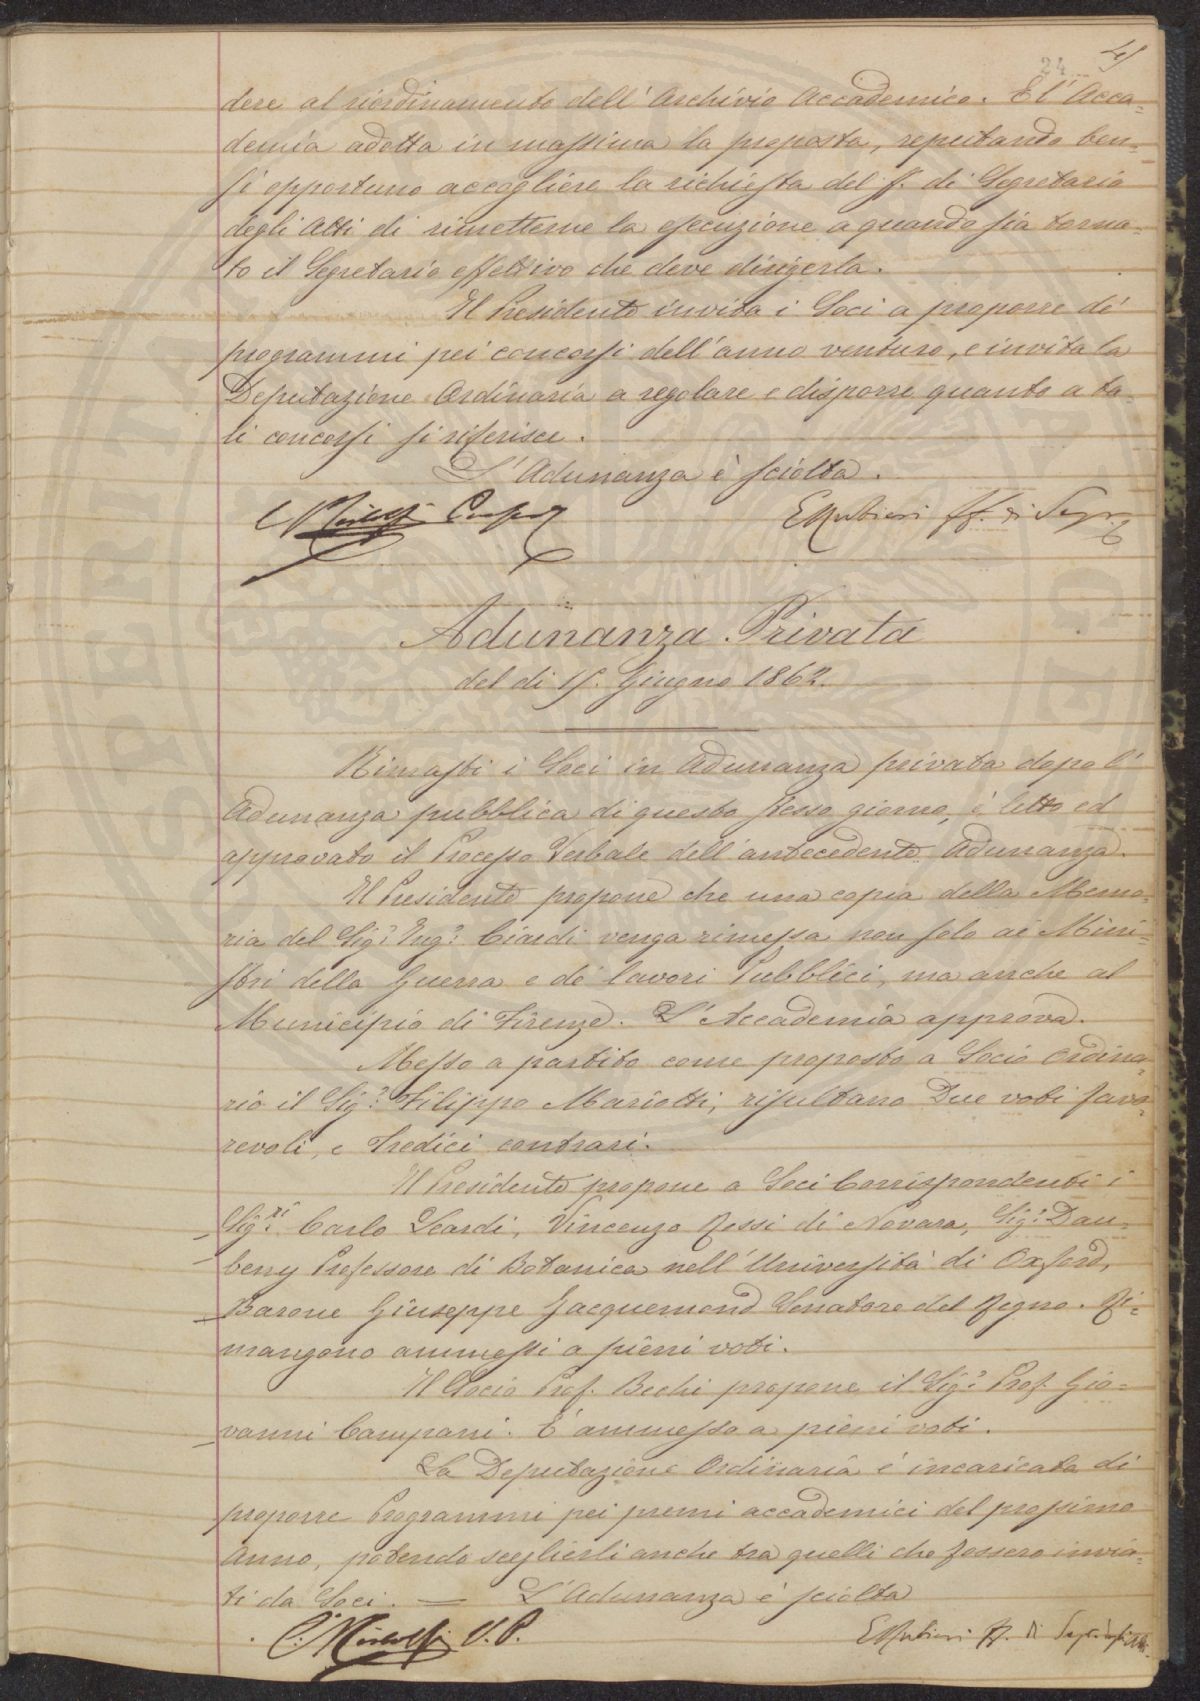 24
dere al riordinamento dell'Archivio Accademico. E l'Acca=
demia adotta in massima la proposta, reputando ben=
sì opportuno accogliere la richiesta del f. di Segretario
degli Atti di rimetterne la esecuzione a quando sia torna=
to il Segretario effettivo che deve dirigerla.
Il Presidente invita i Soci a proporre de'
programmi pei concorsi dell'anno venturo, e invita la
Deputazione Ordinaria a regolare e disporre quanto a ta=
li concorsi si riferisce.
L'Adunanza è sciolta.
E Rubieri ff. di Segr.
Adunanza Privata
del dì 15. Giugno 1862.
Rimasti i Soci in Adunanza privata dopo l'
Adunanza pubblica di questo stesso giorno, è letto ed
approvato il Processo Verbale dell'antecedente Adunanza.
Il Presidente propone che una copia della Memo=
ria del Sig.r Ing.r Ciardi venga rimessa non solo ai Mini=
stri della Guerra e de' lavori Pubblici, ma anche al
Municipio di Firenze. L'Accademia approva.
Messo a partito come proposto a Socio Ordina=
rio il Sig.r Filippo Mariotti, risultano Due voti favo=
revoli, e Tredici contrari.
Il Presidente propone a Soci Corrispondenti i
Sig.ri Carlo Leardi, Vincenzo Rossi di Novara, Sig.r Dau=
beny Professore di Botanica nell'Università di Oxford,
Barone Giuseppe Jacquemond Senatore del Regno. Ri=
mangono ammessi a pieni voti.
Il Socio Prof. Bechi propone il Sig.r Prof. Gio=
vanni Campani. E' ammesso a pieni voti.
La Deputazione Ordinaria è incaricata di
proporre Programmi pei premi accademici del prossimo
Anno, potendo sceglierli anche tra quelli che fossero invia=
ti da Soci. — L'Adunanza è sciolta
V. P.
E Rubieri ff. di Segr. degli Atti.